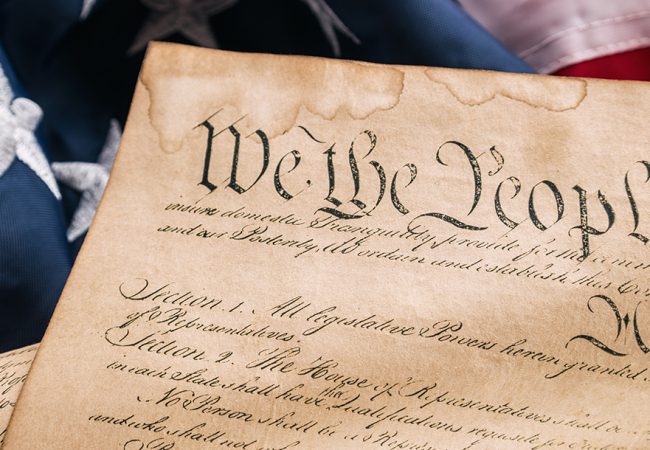 We the Peopl
insure domestic Tranquility, provide for the comm
and our Posterity, do ordain and establish this Con
Section. 1. All legislative Powers herein granted
of Representatives.
Section. 2. The House of Representatives shall be
in each State shall have the Qualifications requisite for
No Person shall be a Repres
and who shall not